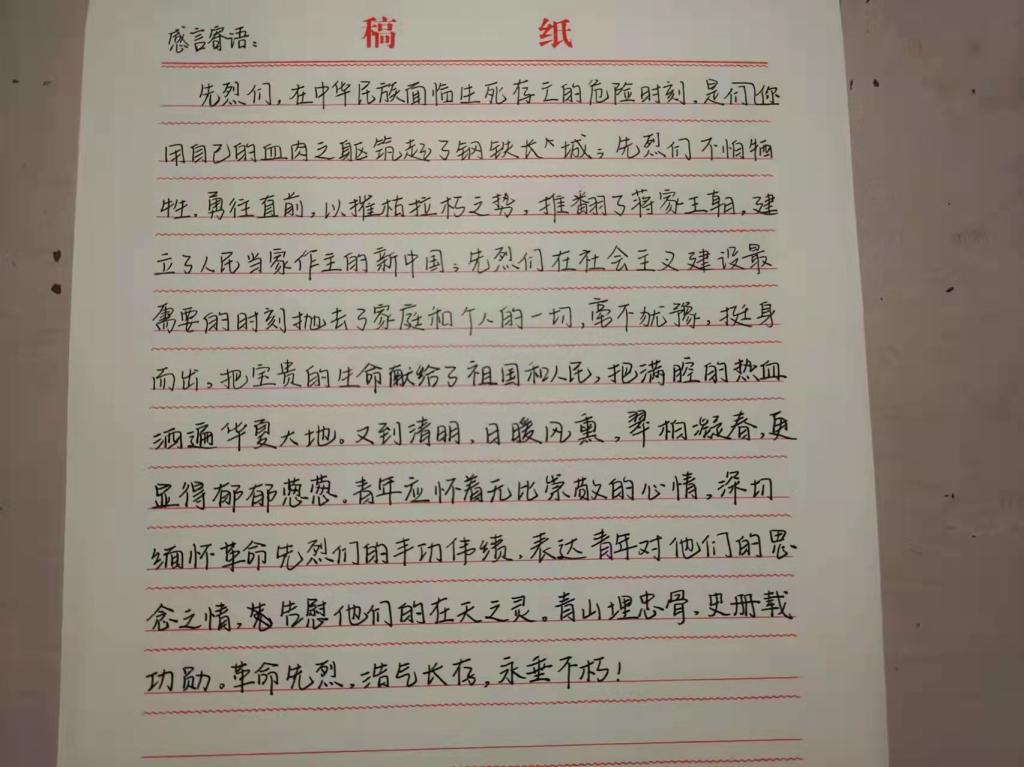 稿 纸
感言寄语：
先烈们，在中华民族面临生死存亡的危险时刻，是们你
用自己的血肉之躯筑起了钢铁长城；先烈们不怕牺
牲，勇往直前，以摧枯拉朽之势，推翻了蒋家王朝，建
立了人民当家作主的新中国；先烈们在社会主义建设最
需要的时刻抛去了家庭和个人的一切，毫不犹豫，挺身
而出，把宝贵的生命献给了祖国和人民，把满腔的热血
洒遍华夏大地。又到清明，日暖风熏，翠柏凝春，更
显得郁郁葱葱。青年应怀着无比崇敬的心情，深切
缅怀革命先烈们的丰功伟绩，表达青年对他们的思
念之情，告慰他们的在天之灵。青山埋忠骨，史册载
功勋。革命先烈，浩气长存，永垂不朽！